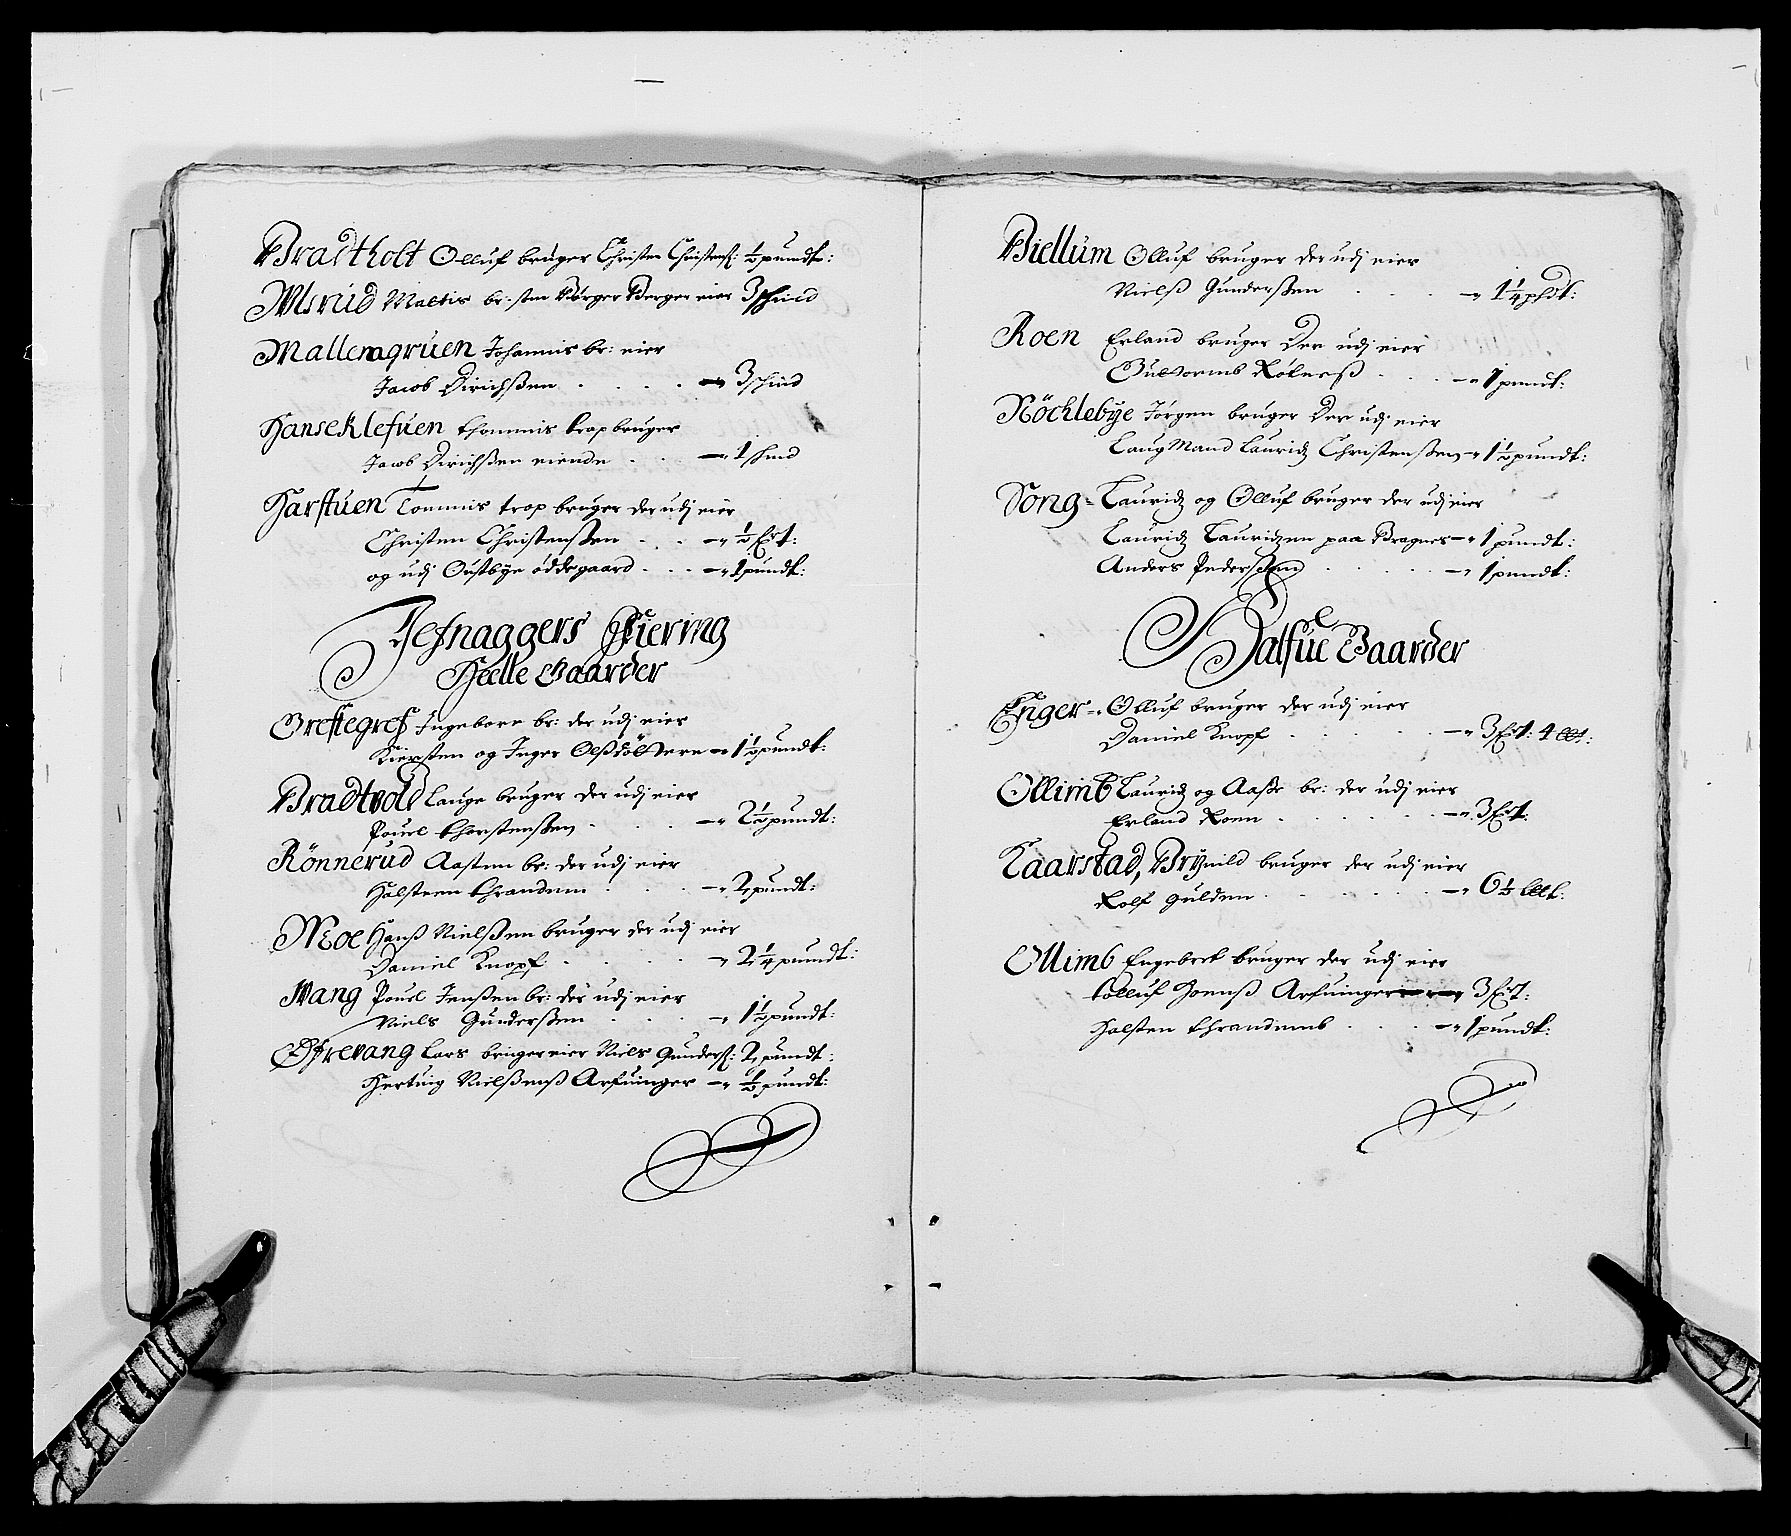 Bradtholt Olluf bruger Christen Christenß: ½ pundt:
Ulsrud Mattis br: sten Børger Berger eier 3 schind
Mallemagruen Johannis br: eier
Jacob Dirichßen . . . . 3 schind
Hanseklefuen thommis trop bruger
Jacob Dirichßen eiende . . . 1 schind
Harstuen Tommis trop bruger der udj eier
Christen Christenßen . . . ½ Fxt:
og udj Oustbye øddegaard . . . 1 pundt:
Jefnaggers Fiering
Heelle Gaarder
Greftegref Ingebore br: der udj eier
Kiersten og Inger Olßdötterr 1½ pundt:
Bradtvold Lauge bruger der udj eier
Pouel thorstenßen . . . 2½ pundt:
Rönnerud Aasten br: der udj eier
Halsteen thrandem . . . 2 pundt:
Moe Hanß Nielßen bruger der udj eier
Daniel Knopf . . . 2¼ pundt:
Wang Pouel Jenßen br: der udj eier
Niels Gunderßen . . . 1½ pundt:
Øfrevang Lars bruger eier Niels Gunderß: 2 pundt:
Hertuig Nielßenß Arfuinger ½ pundt:
Biellum Olluf bruger der udj eier
Nielß Gunderßen . . . 1¼ phdt:
Roen Erland bruger Der udj eier
Guttormb Røkneß . . . 1 pundt:
Nöchlebÿe Jörgen bruger Der udj eier
Laug Mand Lauridz Christenßen 1½ pundt:
Song = Lauridz og Olluf bruger der udj eier
Lauridz Lauridzen paa Bragnes 1 pundt:
Anders Pederßen . . . 1 pundt:
Halfue Gaarder
Enger = Olluf bruger der udj eier
Daniel Knopf . . . 3 Fxt: 4 let:
Ollimb Lauridz og Aaße br: der udj eier
Erland Roen . . . 3 Fxt:
Kaarstad, Brÿnild bruger der udj eier
Rolf Gulden . . . 6½ let:
Ollimb Engebret bruger der udj eier
tolluf Joenß Arfuinger 3 Fxt:
Halsten thrandemb . . . 1 pundt: